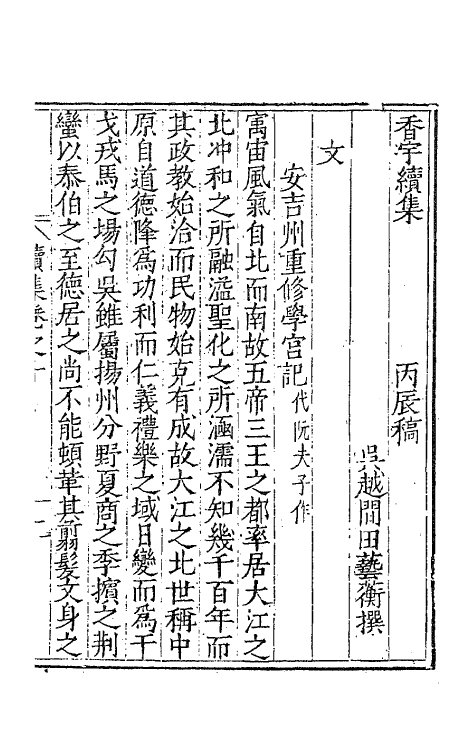 香宇續集　丙辰稿
吳越間田藝衡撰
文
安吉州重修學宫記代阮夫子作
寓宙風氣自北而南故五帝三王之都率居大江之
北冲和之所融溢聖化之所涵濡不知幾千百年而
其政教始洽而民物始克有成故大江之北世稱中
原自道德隆爲功利而仁義禮樂之域日變而爲干
戈戎馬之場勾吳雖屬揚州分野夏商之季擯之荆
蠻以泰伯之至德居之尚不能頓革其翦髮文身之
續集卷之